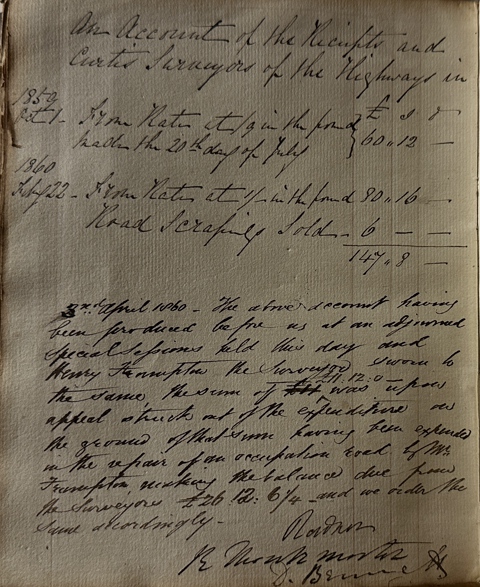 An Account of the Receipts and
Curtis Surveyors of the Highways in
1859 £ s d
Oct 1 - From Rates at /9 in the pound } 60 " 12 —
made the 20th day of July
1860
Feby 22 - From Rates at 1/- in the pound 80 " 16 —
Road Scrapings Sold - 6 — —
147 " 8 —
April 1860 - The above account having
been produced before us at an adjourned
Special Sessions held this day and
Henry Frampton the Surveyor sworn to
the same, the sum of was upon
appeal struck out of the expenditure on
the ground of that sum having been expended
in the repair of an occupation road by Mr
Frampton, making the balance due from
the Surveyors £26: 12: 6¼ and we order the
same accordingly -
Radnor